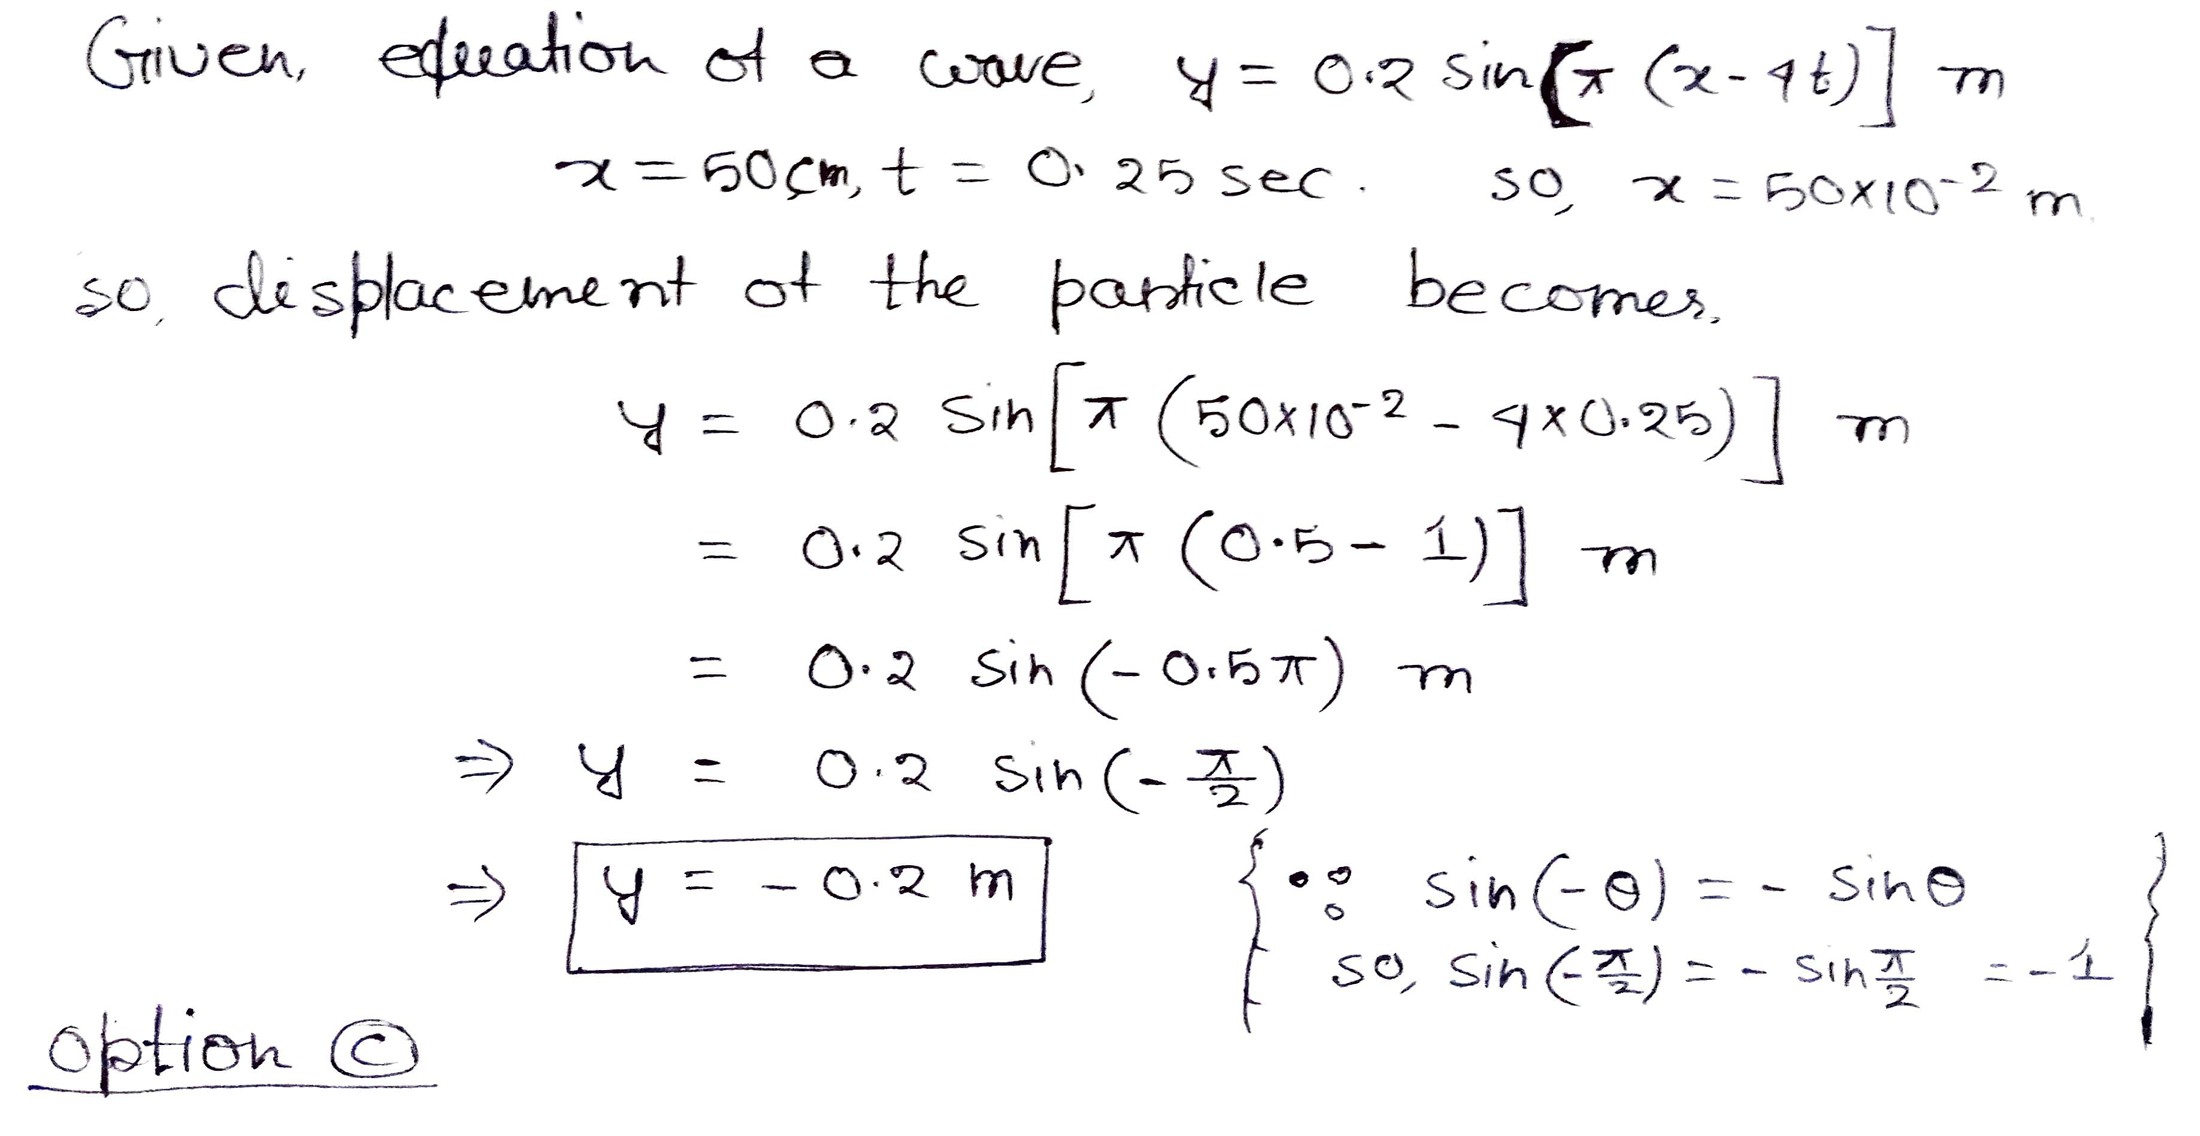 Given, equation of a wave, y = 0.2 sin[π (x - 4t)] m
x = 50 cm, t = 0.25 sec. so, x = 50×10-2 m.
so, displacement of the particle becomes,
y = 0.2 sin[π (50×10-2 - 4×0.25)] m
= 0.2 sin[π (0.5 - 1)] m
= 0.2 sin (-0.5π) m
⇒ y = 0.2 sin (-π/2)
⇒ y = - 0.2 m { ∵ sin(-θ) = - sinθ
so, sin(-π/2) = - sin π/2 = -1 }
option ©